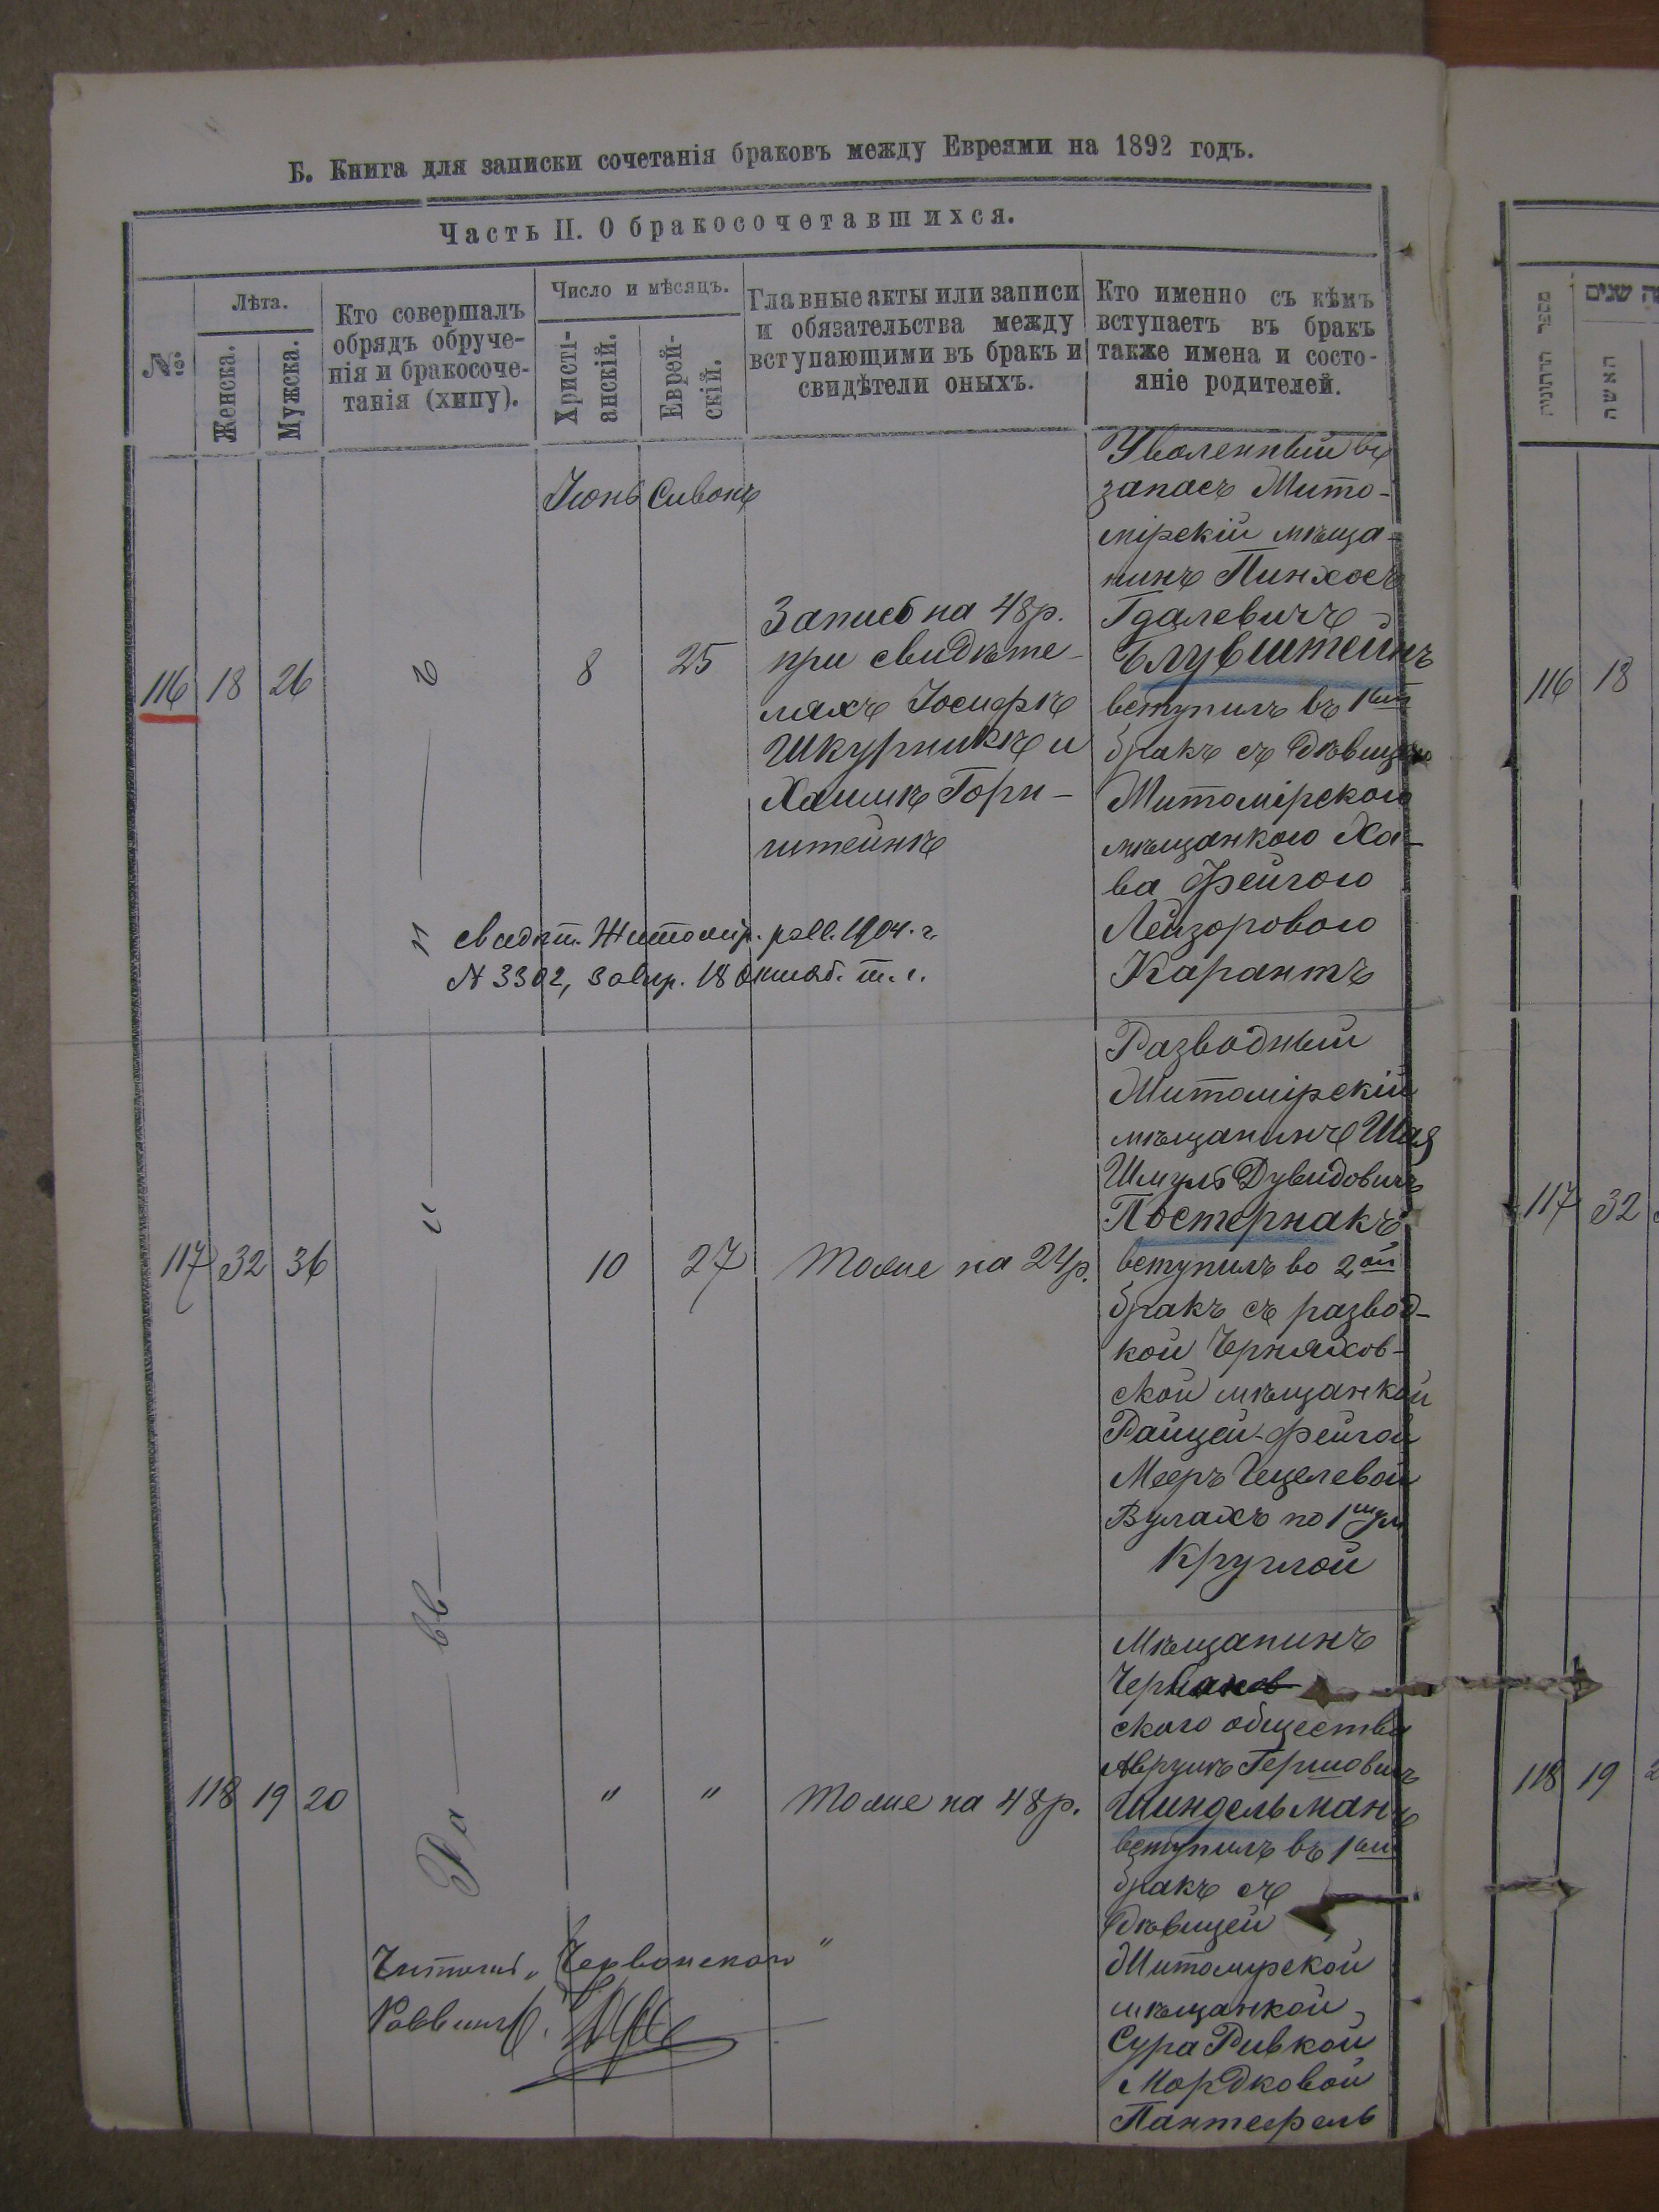 Б. Книга для записки сочетанія браковъ между Евреями на 1892 годъ.
Часть II. О бракосочетавшихся.
№
Лѣта.
Женска.
Мужска.
Кто совершалъ
обрядъ обруче-
нія и бракосоче-
танія (хипу).
Число и мѣсяцъ.
Христі-
анскій.
Еврей-
скій.
Главные акты или записи
и обязательства между
вступающими въ бракъ и
свидѣтели оныхъ.
Кто именно съ кѣмъ
вступаетъ въ бракъ
также имена и состо-
яніе родителей.
Іюнь Сивонъ
116 18 26
8 25
Запись на 48 р.
при свидѣте-
ляхъ Іосифѣ
Шкурникѣ и
Хаимѣ Горн-
штейнѣ
Уволенный въ
запасъ Жито-
мірскій мѣща-
нинъ Пинхосъ
Гдалевичъ
Блувштейнъ
вступилъ въ 1ый
бракъ съ дѣвицею
Житомірскою
мѣщанкою Ха-
ва Фейгою
Лейзоровою
Карантъ
свидѣт. Житомір. 1904. г.
№ 3302, 18 т. г.
117 32 36
10 27
Тоже на 24 р.
Разводный
Житомірскій
мѣщанинъ Шая
Шмуль Дувидовичъ
Постернакъ
вступилъ во 2ой
бракъ съ развод-
кой Черняхов-
ской мѣщанкой
Райцей-Фейгой
Мееръ Гецелевой
Вулахъ по 1му м
Круглой
118 19 20
" "
Тоже на 48 р.
Мѣщанинъ
ского общества
Аврумъ Гершовичъ
Шиндельманъ
вступилъ въ 1ый
бракъ съ
дѣвицей
Житомирской
мѣщанкой
Сура Ривкой
Мордковой
Пантофель
Ра — вв — и — н — ъ
Читать „Червонского"
Раввинъ
מספר החתונות
שנים
האשה
116 18
117 32
118 19 2